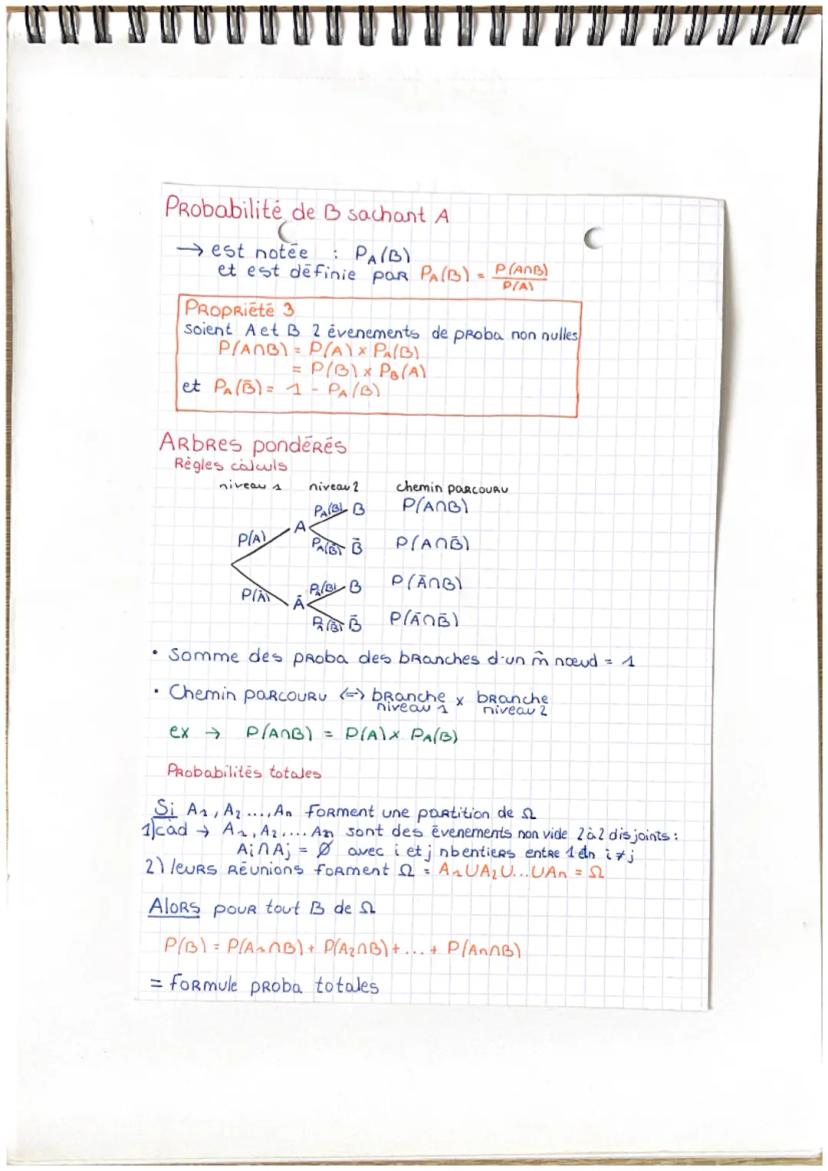 Probabilité de B sachant A
→ est notée : P_A(B)
et est définie par P_A(B) = P(A∩B)/P(A)
Propriété 3
soient A et B 2 évenements de proba non nulles
P(A∩B) = P(A) × P_A(B)
= P(B) × P_B(A)
et P_A(B̄) = 1 - P_A(B)
Arbres pondérés
Règles calculs
niveau 1 niveau 2 chemin parcouru
P_A(B) B P(A∩B)
P(A) A
P_A(B̄) B̄ P(A∩B̄)
P_Ā(B) B P(Ā∩B)
P(Ā) Ā
P_Ā(B̄) B̄ P(Ā∩B̄)
• Somme des proba des branches d'un m̂ nœud = 1
• Chemin parcouru ⇔ branche niveau 1 × branche niveau 2
ex → P(A∩B) = P(A) × P_A(B)
Probabilités totales
Si A₁, A₂ ..., An forment une partition de Ω
1) càd → A₁, A₂, ... An sont des évenements non vide 2 à 2 disjoints :
Ai ∩ Aj = ∅ avec i et j nb entiers entre 1 et n i ≠ j
2) leurs réunions forment Ω = A₁UA₂U...UAn = Ω
Alors pour tout B de Ω
P(B) = P(A₁∩B) + P(A₂∩B) + ... + P(An∩B)
= formule proba totales